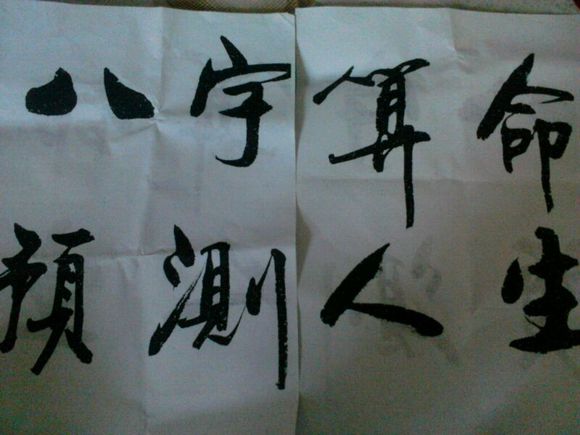 八字算命
預測人生